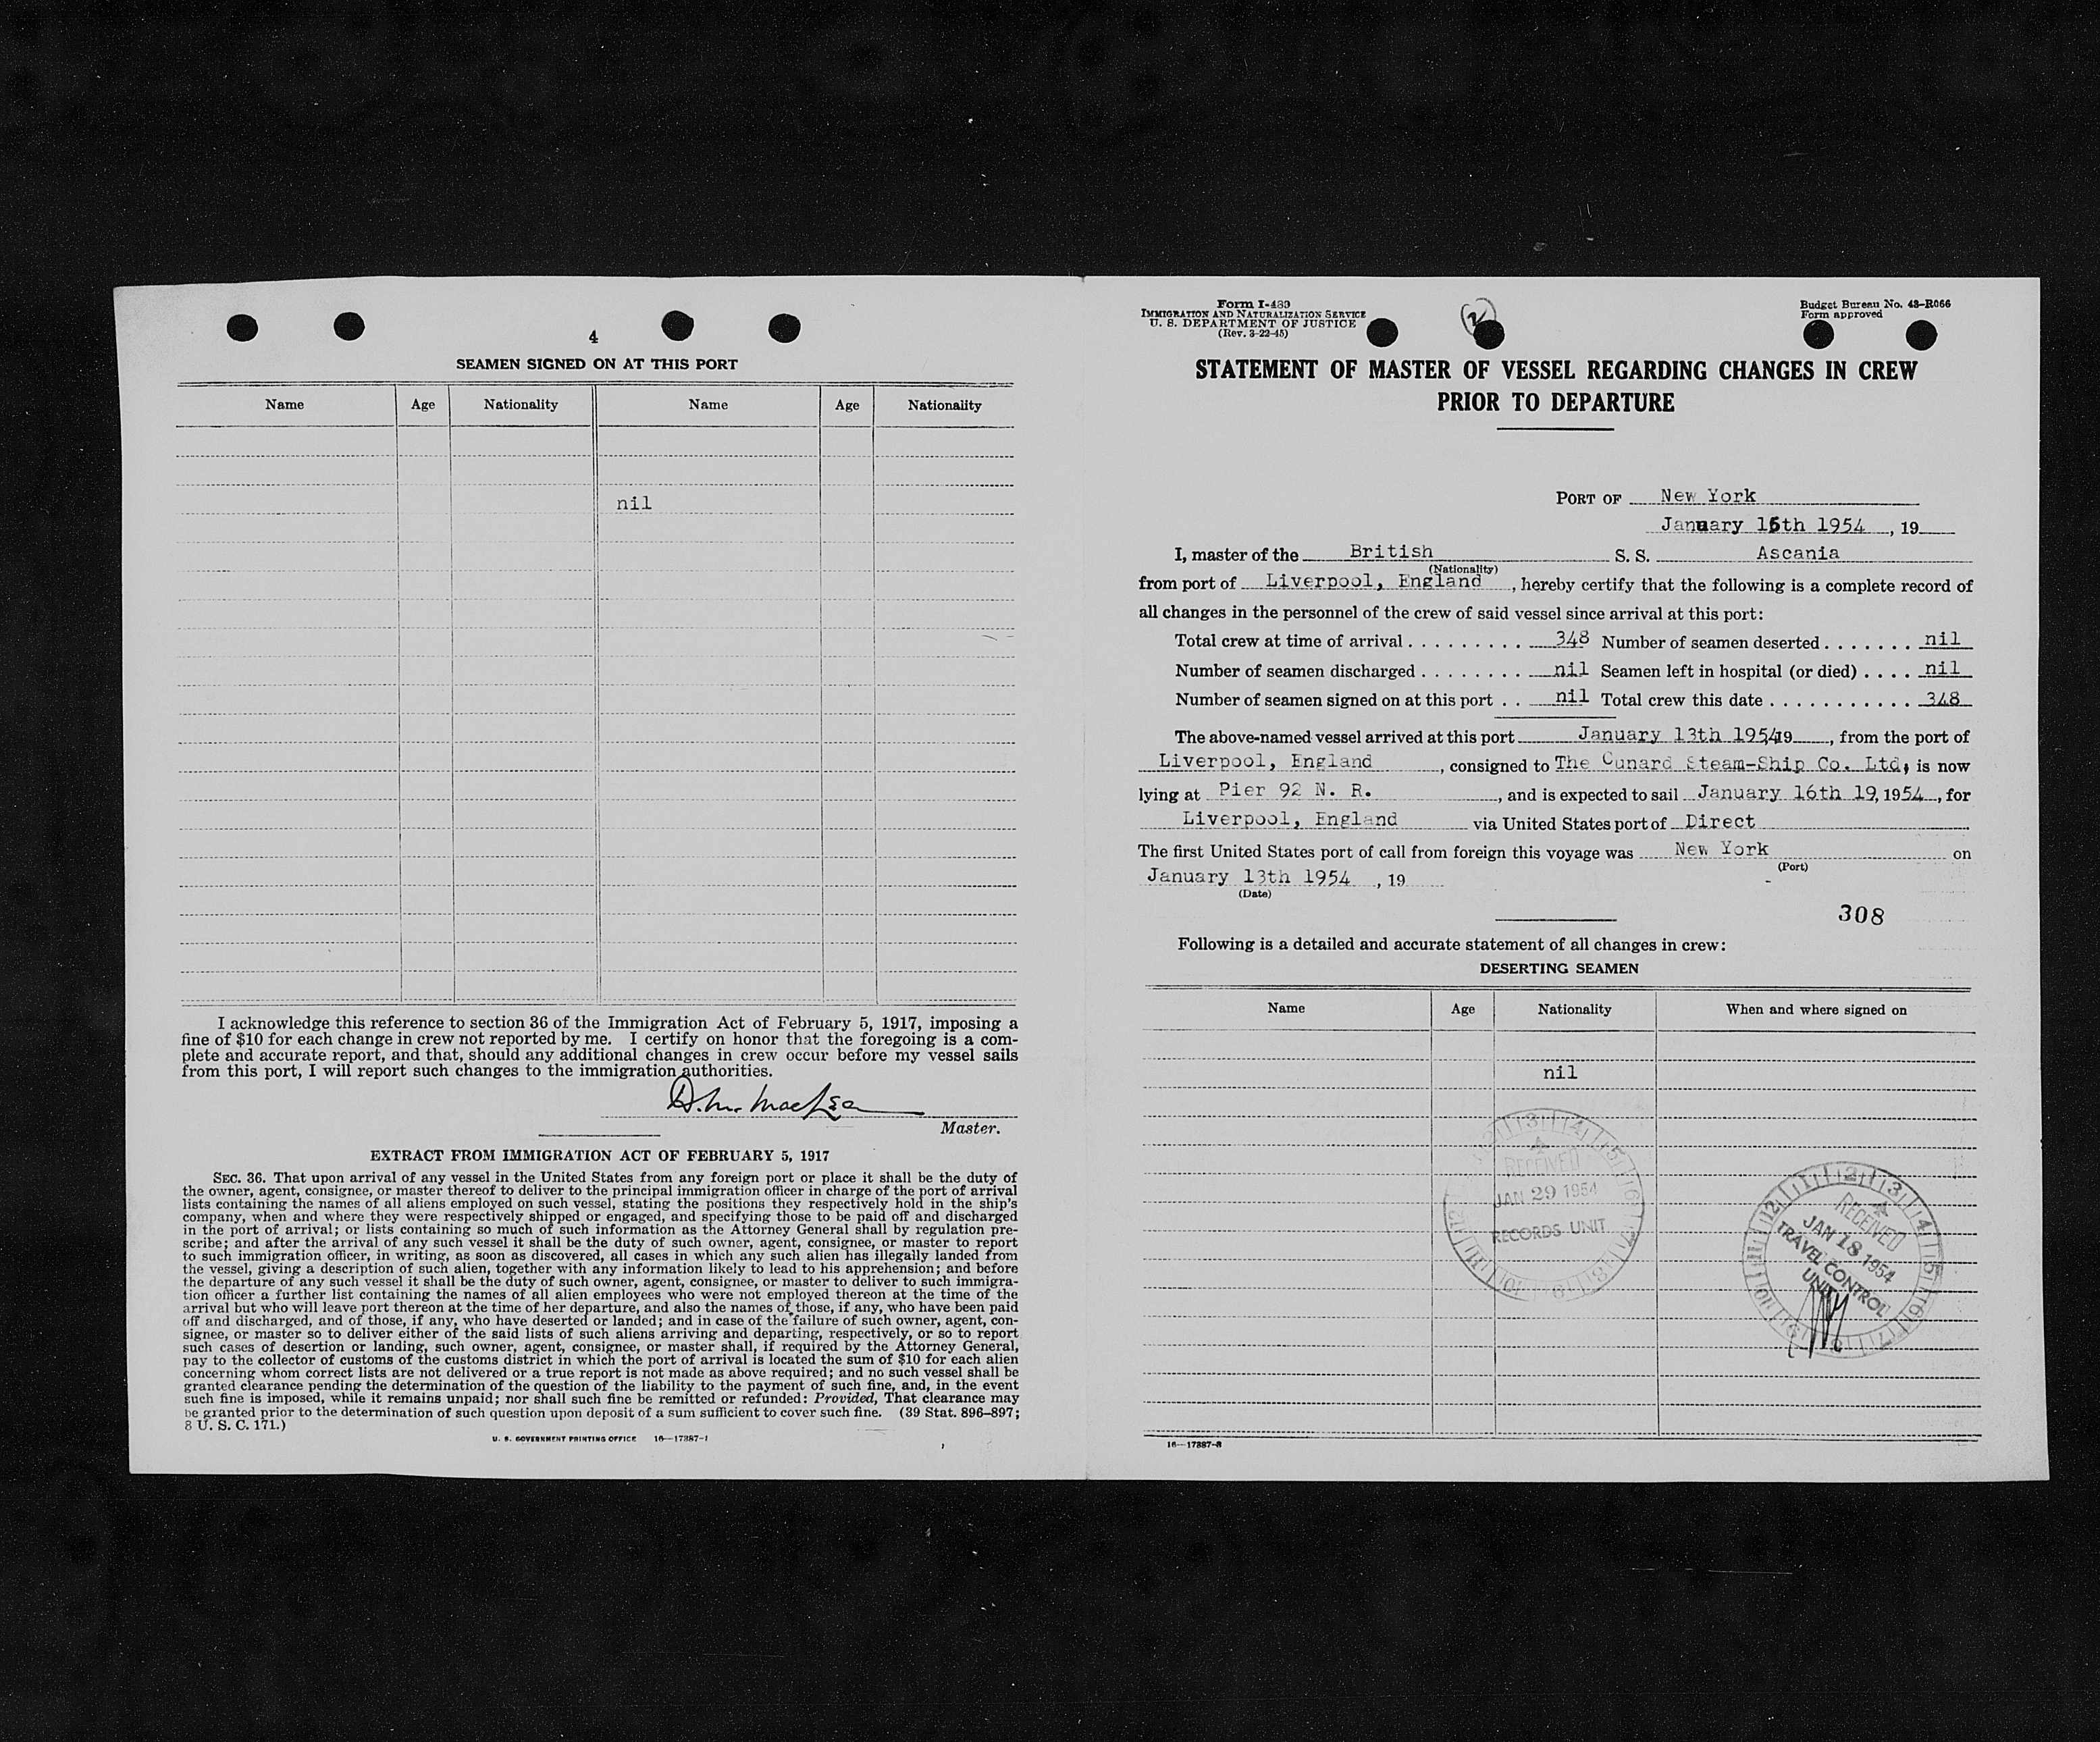 4
SEAMEN SIGNED ON AT THIS PORT
Name Age Nationality Name Age Nationality
nil
I acknowledge this reference to section 36 of the Immigration Act of February 5, 1917, imposing a
fine of $10 for each change in crew not reported by me. I certify on honor that the foregoing is a com-
plete and accurate report, and that, should any additional changes in crew occur before my vessel sails
from this port, I will report such changes to the immigration authorities.
Master.
EXTRACT FROM IMMIGRATION ACT OF FEBRUARY 5, 1917
SEC. 36. That upon arrival of any vessel in the United States from any foreign port or place it shall be the duty of
the owner, agent, consignee, or master thereof to deliver to the principal immigration officer in charge of the port of arrival
lists containing the names of all aliens employed on such vessel, stating the positions they respectively hold in the ship's
company, when and where they were respectively shipped or engaged, and specifying those to be paid off and discharged
in the port of arrival; or lists containing so much of such information as the Attorney General shall by regulation pre-
scribe; and after the arrival of any such vessel it shall be the duty of such owner, agent, consignee, or master to report
to such immigration officer, in writing, as soon as discovered, all cases in which any such alien has illegally landed from
the vessel, giving a description of such alien, together with any information likely to lead to his apprehension; and before
the departure of any such vessel it shall be the duty of such owner, agent, consignee, or master to deliver to such immigra-
tion officer a further list containing the names of all alien employees who were not employed thereon at the time of the
arrival but who will leave port thereon at the time of her departure, and also the names of those, if any, who have been paid
off and discharged, and of those, if any, who have deserted or landed; and in case of the failure of such owner, agent, con-
signee, or master so to deliver either of the said lists of such aliens arriving and departing, respectively, or so to report
such cases of desertion or landing, such owner, agent, consignee, or master shall, if required by the Attorney General,
pay to the collector of customs of the customs district in which the port of arrival is located the sum of $10 for each alien
concerning whom correct lists are not delivered or a true report is not made as above required; and no such vessel shall be
granted clearance pending the determination of the question of the liability to the payment of such fine, and, in the event
such fine is imposed, while it remains unpaid; nor shall such fine be remitted or refunded: Provided, That clearance may
be granted prior to the determination of such question upon deposit of a sum sufficient to cover such fine. (39 Stat. 896–897;
8 U. S. C. 171.)
U. S. GOVERNMENT PRINTING OFFICE 16—17387-1
Form I-489
IMMIGRATION AND NATURALIZATION SERVICE
U. S. DEPARTMENT OF JUSTICE
(Rev. 3-22-45)
2
Budget Bureau No. 43-R066
Form approved
STATEMENT OF MASTER OF VESSEL REGARDING CHANGES IN CREW
PRIOR TO DEPARTURE
PORT OF New York
January 16th 1954, 19
I, master of the British S. S. Ascania
(Nationality)
from port of Liverpool, England, hereby certify that the following is a complete record of
all changes in the personnel of the crew of said vessel since arrival at this port:
Total crew at time of arrival . . . . . . . . . 348 Number of seamen deserted . . . . . . . nil
Number of seamen discharged . . . . . . . . nil Seamen left in hospital (or died) . . . . nil
Number of seamen signed on at this port . . nil Total crew this date . . . . . . . . . . . 348
The above-named vessel arrived at this port January 13th 1954 19, from the port of
Liverpool, England, consigned to The Cunard Steam-Ship Co. Ltd, is now
lying at Pier 92 N. R., and is expected to sail January 16th 19, 1954, for
Liverpool, England via United States port of Direct
The first United States port of call from foreign this voyage was New York on
(Port)
January 13th 1954, 19
(Date)
308
Following is a detailed and accurate statement of all changes in crew:
DESERTING SEAMEN
Name Age Nationality When and where signed on
nil
RECEIVED
JAN 29 1954
RECORDS UNIT
RECEIVED
JAN 18 1954
TRAVEL CONTROL
UNIT
16—17387-3